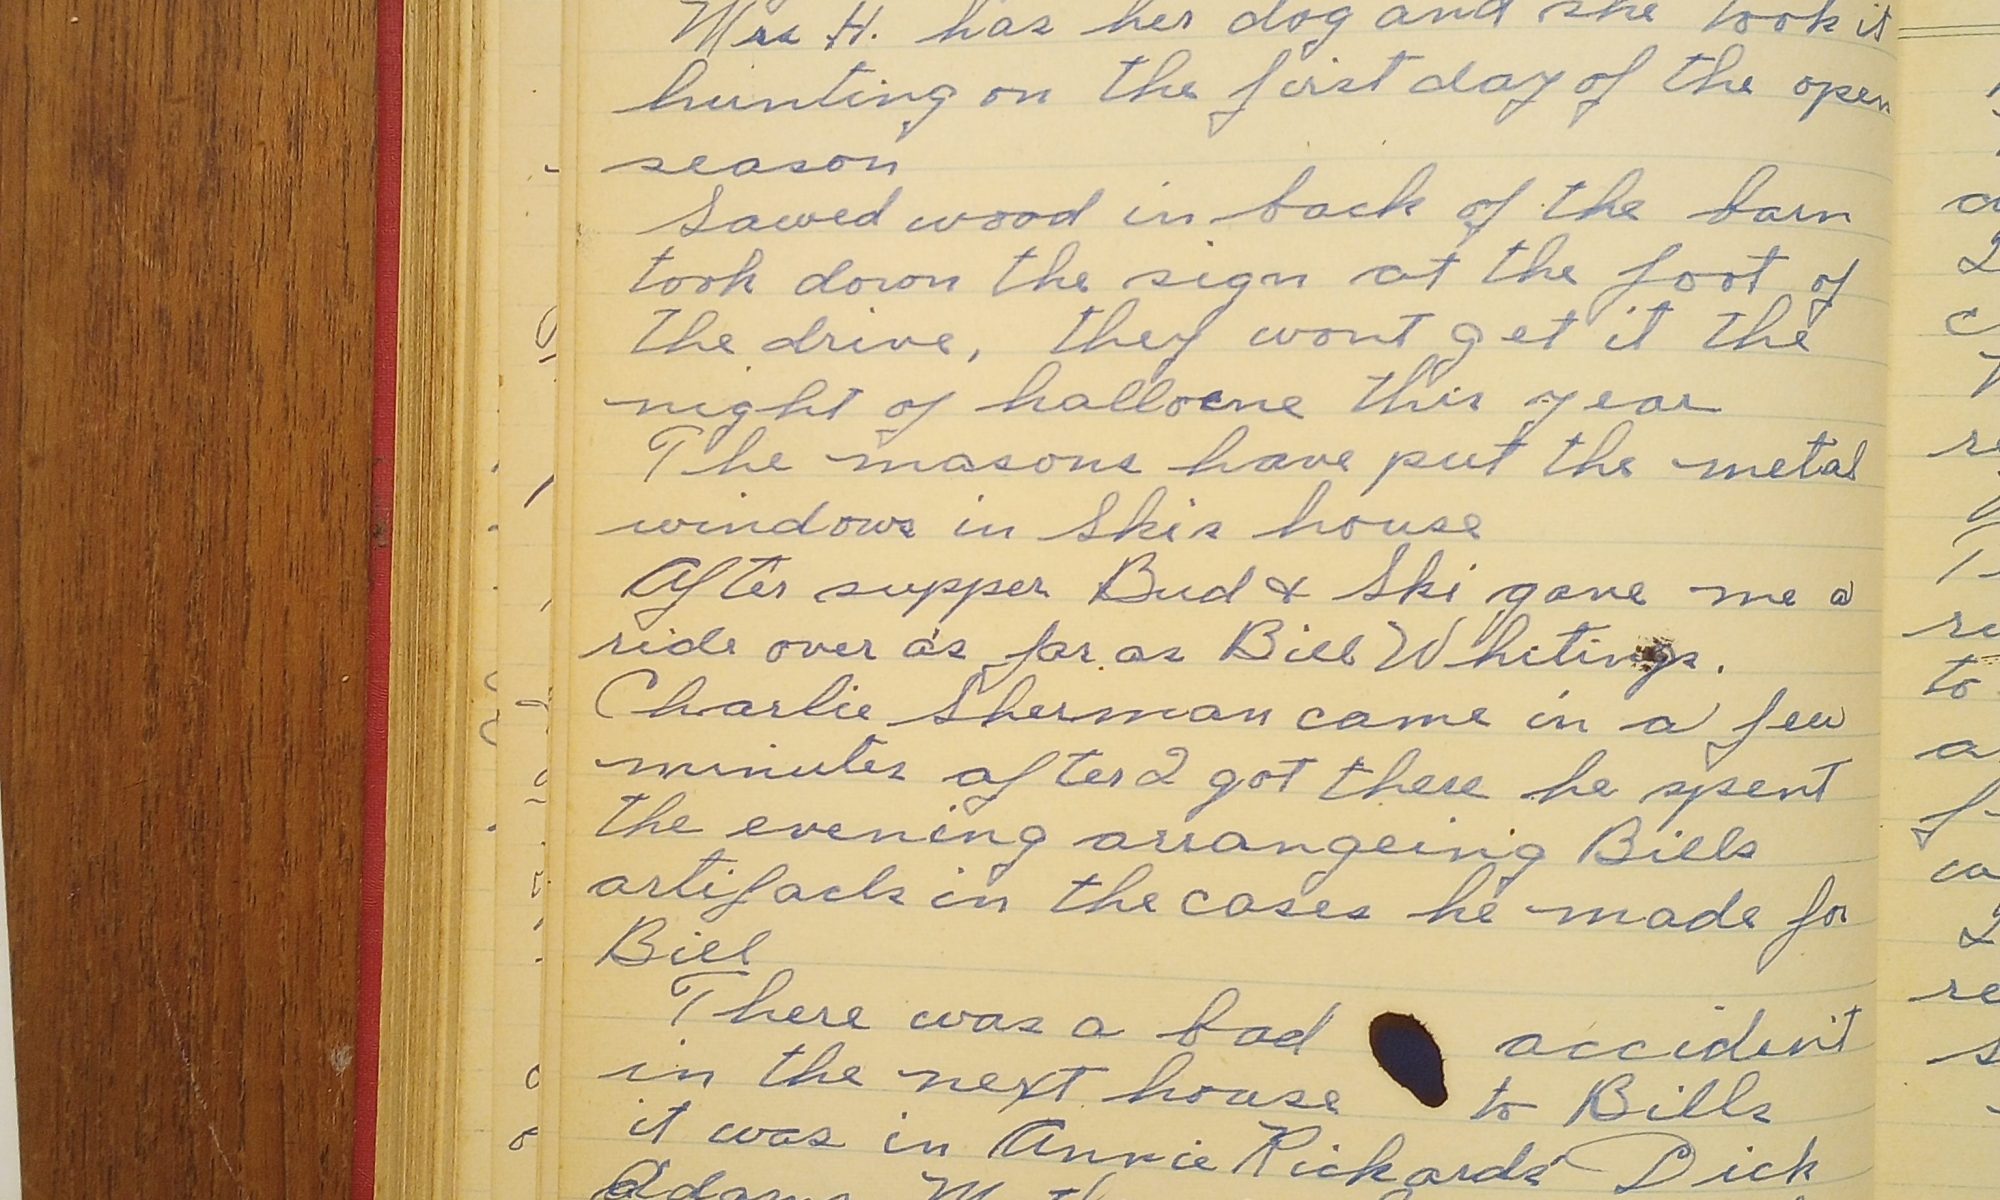 Mrs H. has her dog and she took it
hunting on the first day of the open
season
Sawed wood in back of the barn
took down the sign at the foot of
the drive, they wont get it the
night of halloene this year
The masons have put the metal
windows in Skis house
After supper Bud & Ski gave me a
ride over as far as Bill Whitings.
Charlie Sherman came in a few
minutes after I got there he spent
the evening arrangeing Bills
artifacts in the cases he made for
Bill
There was a bad accident
in the next house to Bills
it was in Annie Rickards Dick
Adams